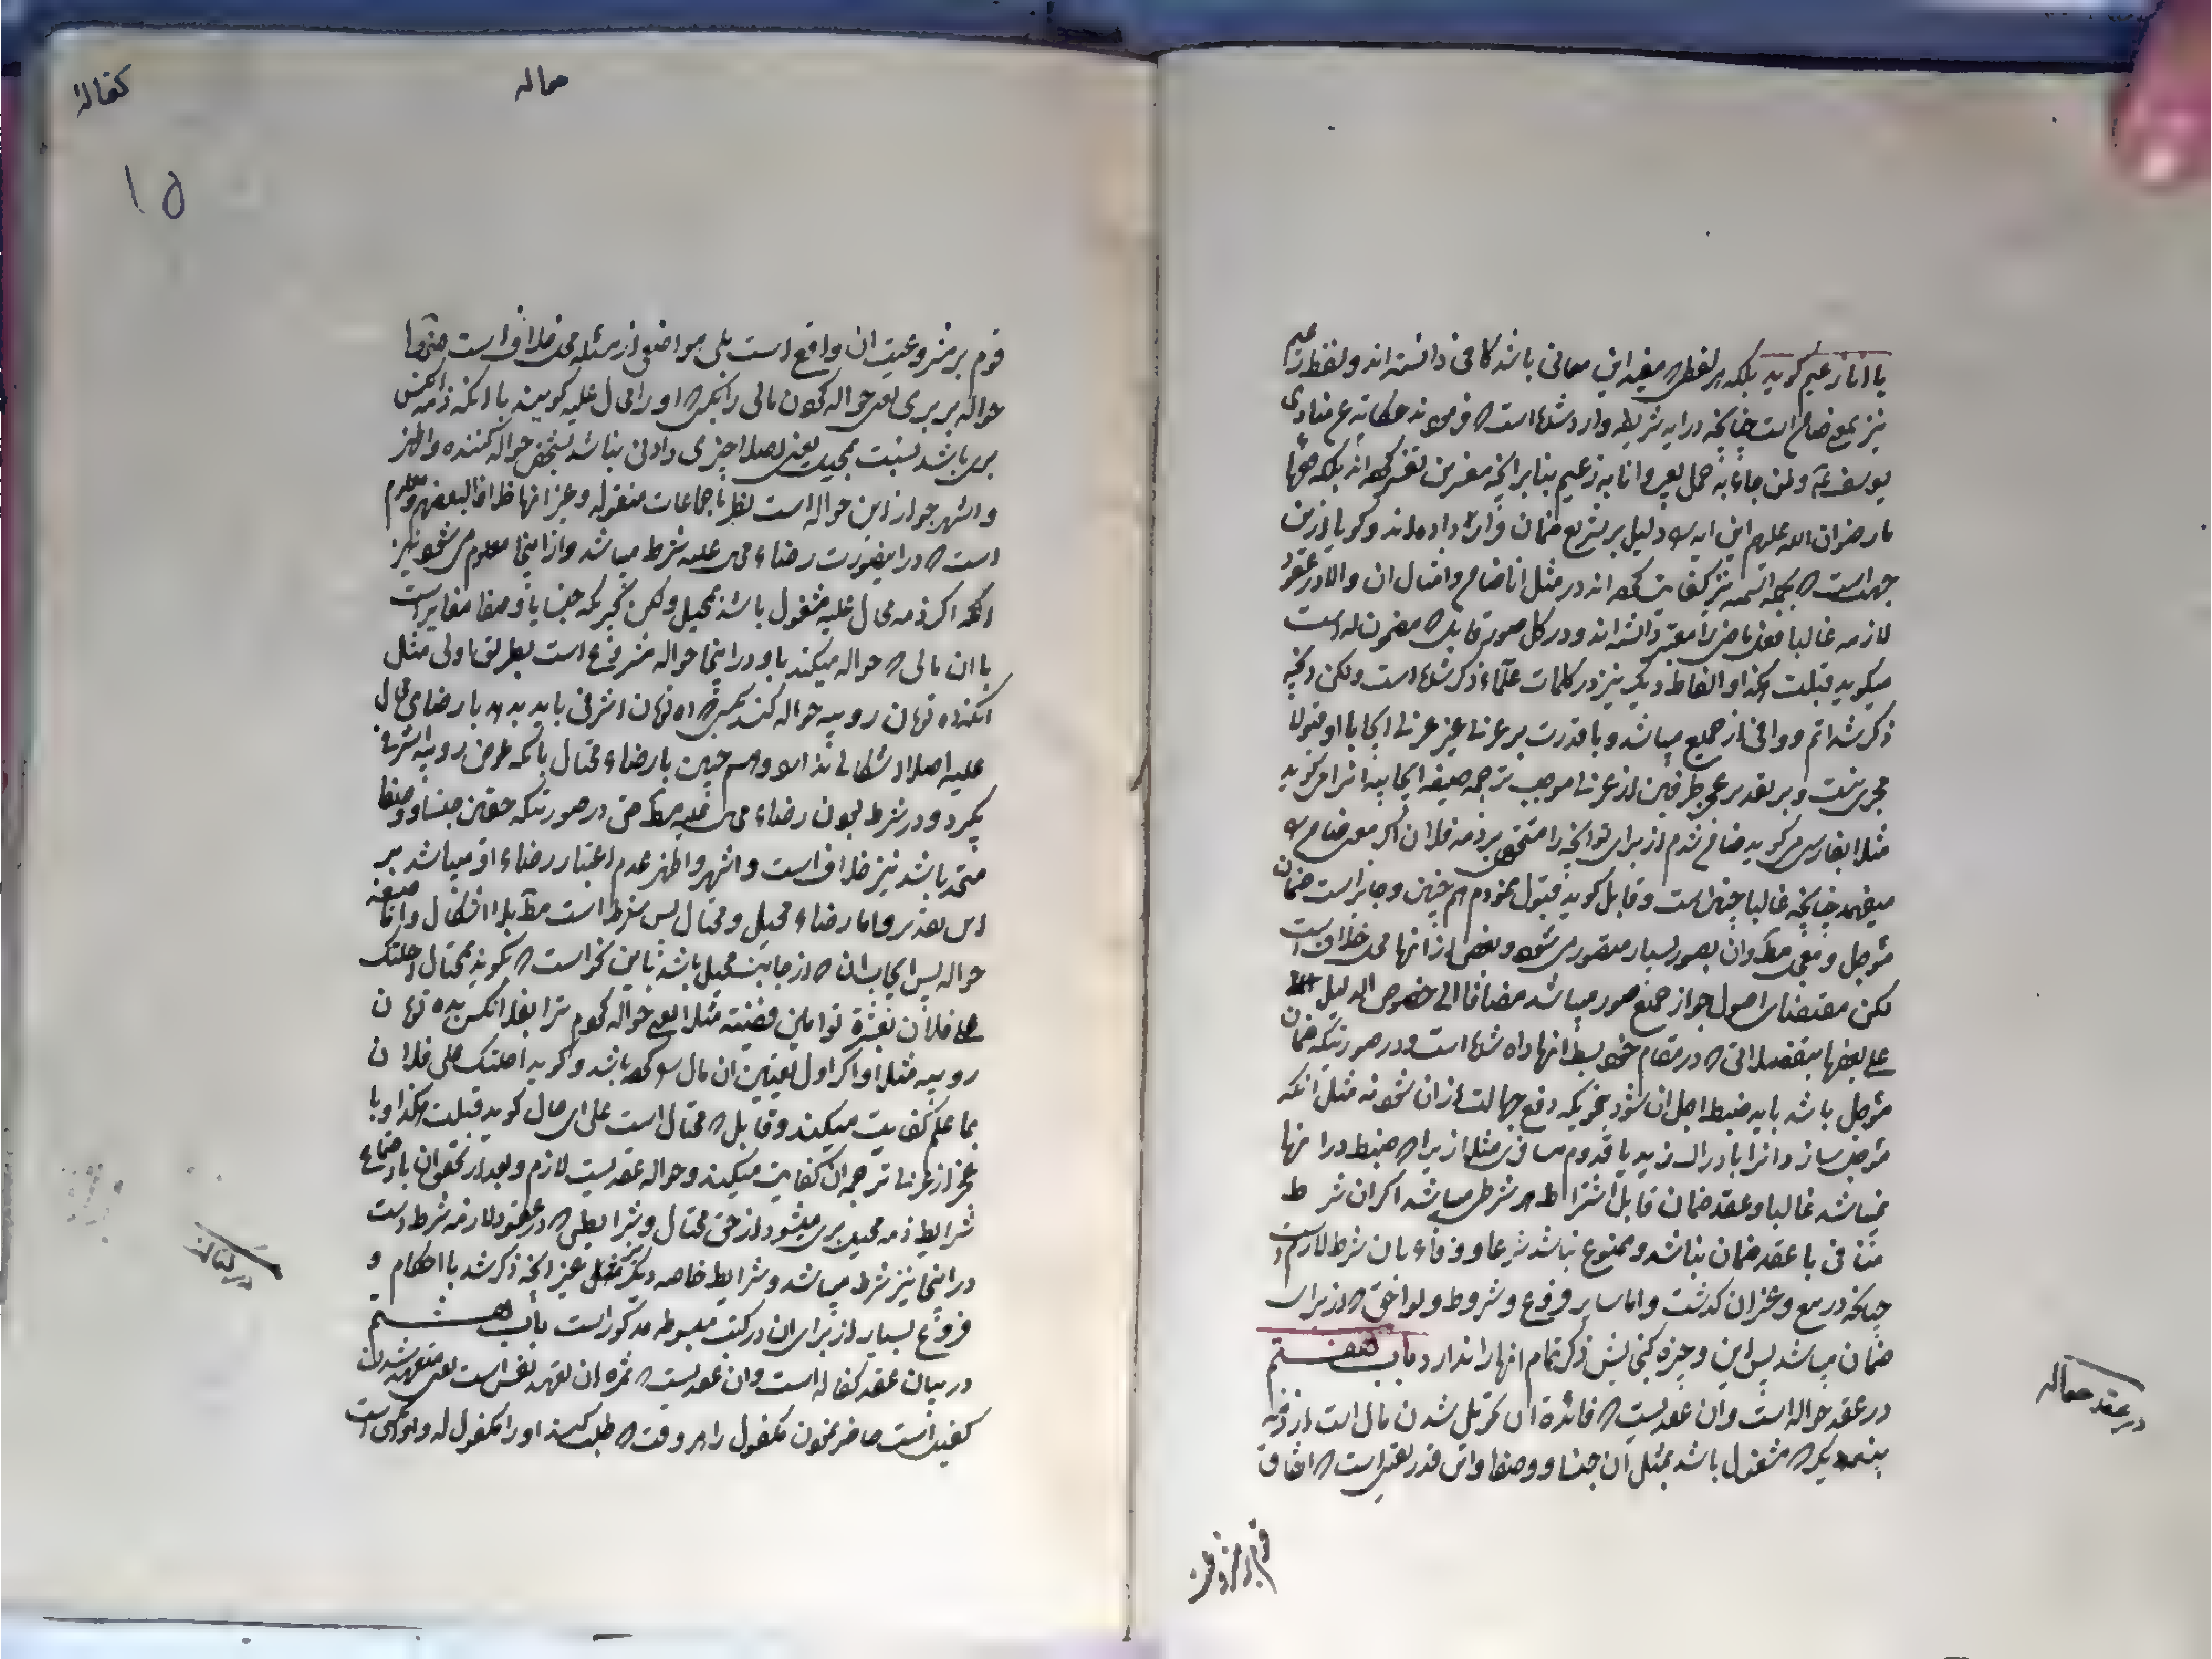 یا انا زعیم گوید بلکه هر لفظی که مفید این معانی باشد کافی دانسته اند و لفظ زعیم
نیز بمعنی ضامن است چنانچه در آیه شریفه وارد شده است که فرموده حکایة عن منادی
یوسف ع و لمن جاء به حمل بعیر و انا به زعیم بنابر آنچه مفسرین تفسیر کرده اند بلکه فقها
ما رضوان الله علیهم این آیه را دلیل بر تشریع ضمان قرار داده اند و گویا از این
جهة است که بجمله اسمیه نیز کفایت کرده اند در مثل انا ضامن و امثال آن و الا در عقود
لازمه غالبا فعل ماضی را معتبر دانسته اند و در کل صور قابل که مضمون له است
میگوید قبلت هکذا و الفاظ دیگر نیز در کلمات علماء ذکر شده است و لکن آنچه
ذکر شد اتم و وافی از جمیع میباشد و با قدرت بر عربی غیر عربی ایجابا او قبولا
مجزی نیست و بر تقدیر عجز طرفین از عربی موجب ترجمه صیغه ایجابیه را گوید
مثلا بفارسی گوید ضامن شدم از برای تو آنچه را مستحقی بر ذمه فلان اگر معنی ضامن را
میفهمد چنانچه غالبا چنین است و قابل گوید قبول نمودم هم چنین و جایز است ضمان
مؤجل و معجل و آن بصور بسیار متصور میشود و بعضی از آنها محل خلاف است
لکن مقتضای اصول جواز جمیع صور میباشد مضافا الی خصوص الدلیل
علی بعضها بتفصیلاتی که در مقام خود بسط آنها داده شده است و در صورتیکه ضمان
مؤجل باشد باید ضبط اجل آن شود بنحویکه رفع جهالت از آن شود نه مثل آنکه
مؤجل سازد آنرا بادراک زید یا قدوم مسافری مثلا از برا که ضبط در آنها
نمیباشد غالبا و عقد ضمان قابل اشتراط هر شرطی میباشد اگر آن شرط
منافی با عقد ضمان نباشد و ممنوع نباشد شرعا و وفاء بآن شرط لازم است
چنانکه در بیع و غیر آن گذشت و اما سایر فروع و شروط و لواحق که از برای
ضمان میباشد پس این وجیزه گنجایش ذکر تمام آنها را ندارد باب هفتم
در عقد حواله است و آن عقدیست که فائده آن تحویل شدن مال است از ذمه
بذمه دیگر که مشغول باشد بمثل آن جنسا و وصفا و این قدر یقین است که اتفاق
قوم بر مشروعیت
در عقد حواله
کفالة
حواله
۱۵
قوم بر مشروعیت آن واقع است بلی مواضعی از مسئله محل خلاف است منها
حواله بر بری یعنی حواله کردن مالی را بکسیکه او را محال علیه گویند با آنکه ذمه آنکس
بری باشد نسبت بمحیل یعنی اصلا چیزی دادنی نباشد بشخص حواله کننده و اظهر
و اشهر جواز این حواله است نظر باجماعات منقوله و غیر آنها خلافا لبعضهم و معلوم
است که در اینصورت رضاء محال علیه شرط میباشد و از اینجا معلوم میشود نیز
آنکه اگر ذمه محال علیه مشغول باشد بمحیل و لکن بچیزیکه جنسا یا وصفا مغایر است
با آن مالی که حواله میکند باو در اینجا حواله مشروع است بطریق اولی مثل
آنکه ده تومان روپیه حواله کند بکسیکه ده تومان اشرفی باید بدهد با رضای محال
علیه اصلا اشکالی ندارد و هم چنین با رضاء محتال بآنکه عوض روپیه اشرفی
بگیرد و در شرط بودن رضاء محال علیه مطلقا حتی در صورتیکه حقین جنسا و وصفا
متحد باشد نیز خلاف است و اشهر و اظهر عدم اعتبار رضاء او میباشد بر
این تقدیر و اما رضاء محیل و محتال پس شرط است مطلقا بلا اشکال و اما صیغه
حواله پس ایجاب آن که از جانب محیل باشد باین نحو است که بگوید بمحتال احلتک
علی فلان بعشرة توامین فضیة مثلا یعنی حواله کردم ترا بفلان کس بده تومان
روپیه مثلا و اگر اول تعیین آن مال را کرده باشد و گوید احلتک علی فلان
بما علم کفایت میکند و قابل که محتال است علی ای حال گوید قبلت هکذا و با
عجز از عربی ترجمه آن کفایت میکند و حواله عقدیست لازم و بعد از تحقق آن با اجتماع
شرایط ذمه محیل بری میشود از حق محتال و شرایطی که در عقود لازمه شرط است
در اینجا نیز شرط میباشد و شرایط خاصه دیگر نیز غیر آنچه ذکر شد با احکام و
فروع بسیار از برای آن در کتب مبسوطه مذکور است باب هشتم
در بیان عقد کفاله است و آن عقدیست که ثمره آن تعهد نفس است یعنی متعهد شدن
کفیل است حاضر نمودن مکفول را هر وقت که طلب کند او را مکفول له و او کسی است
در کفالت